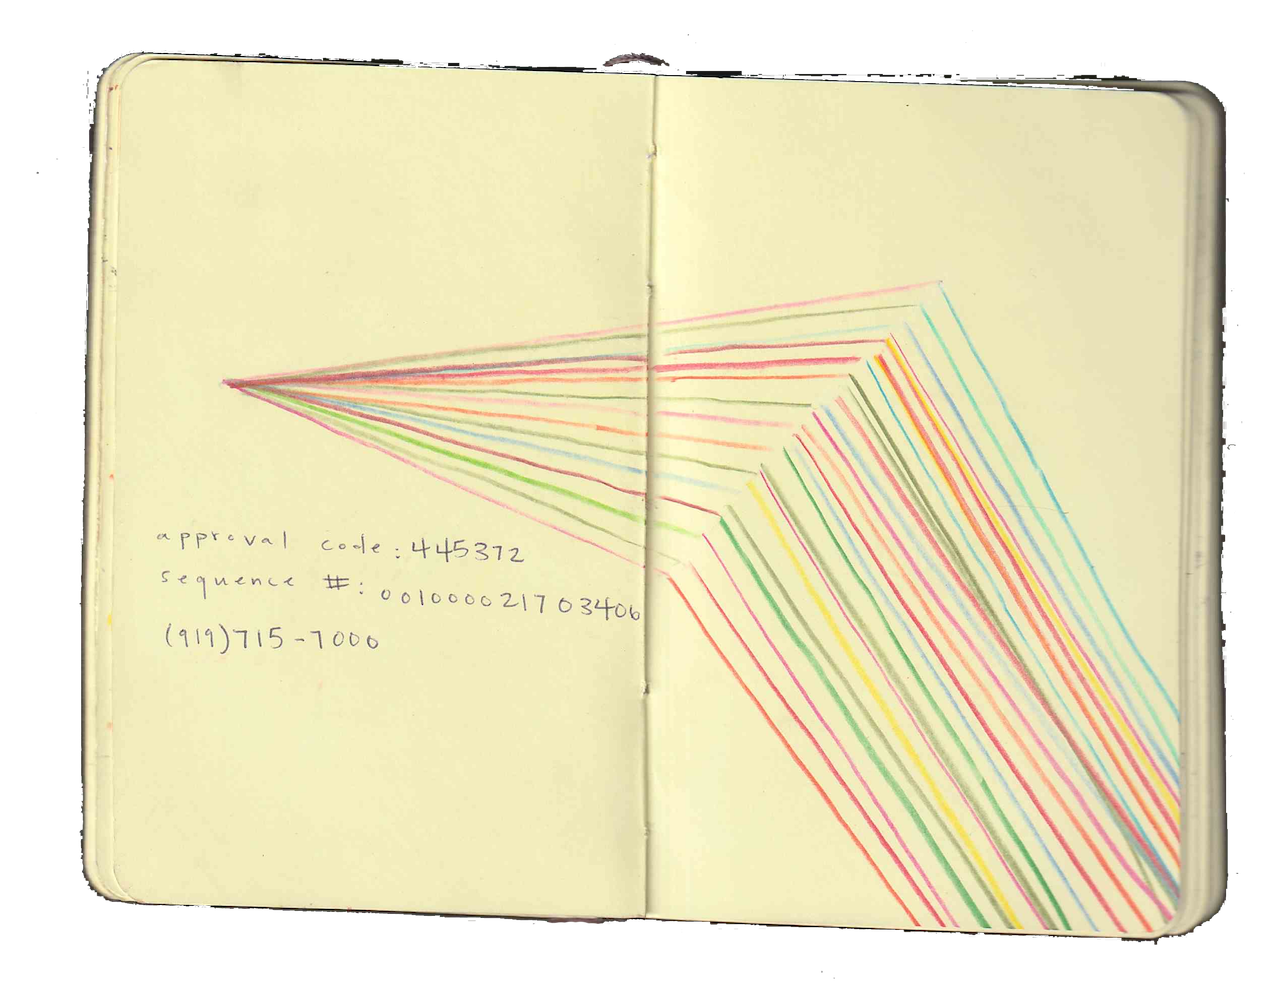 approval code: 445372
sequence #: 001000021703406
(919)715-7000